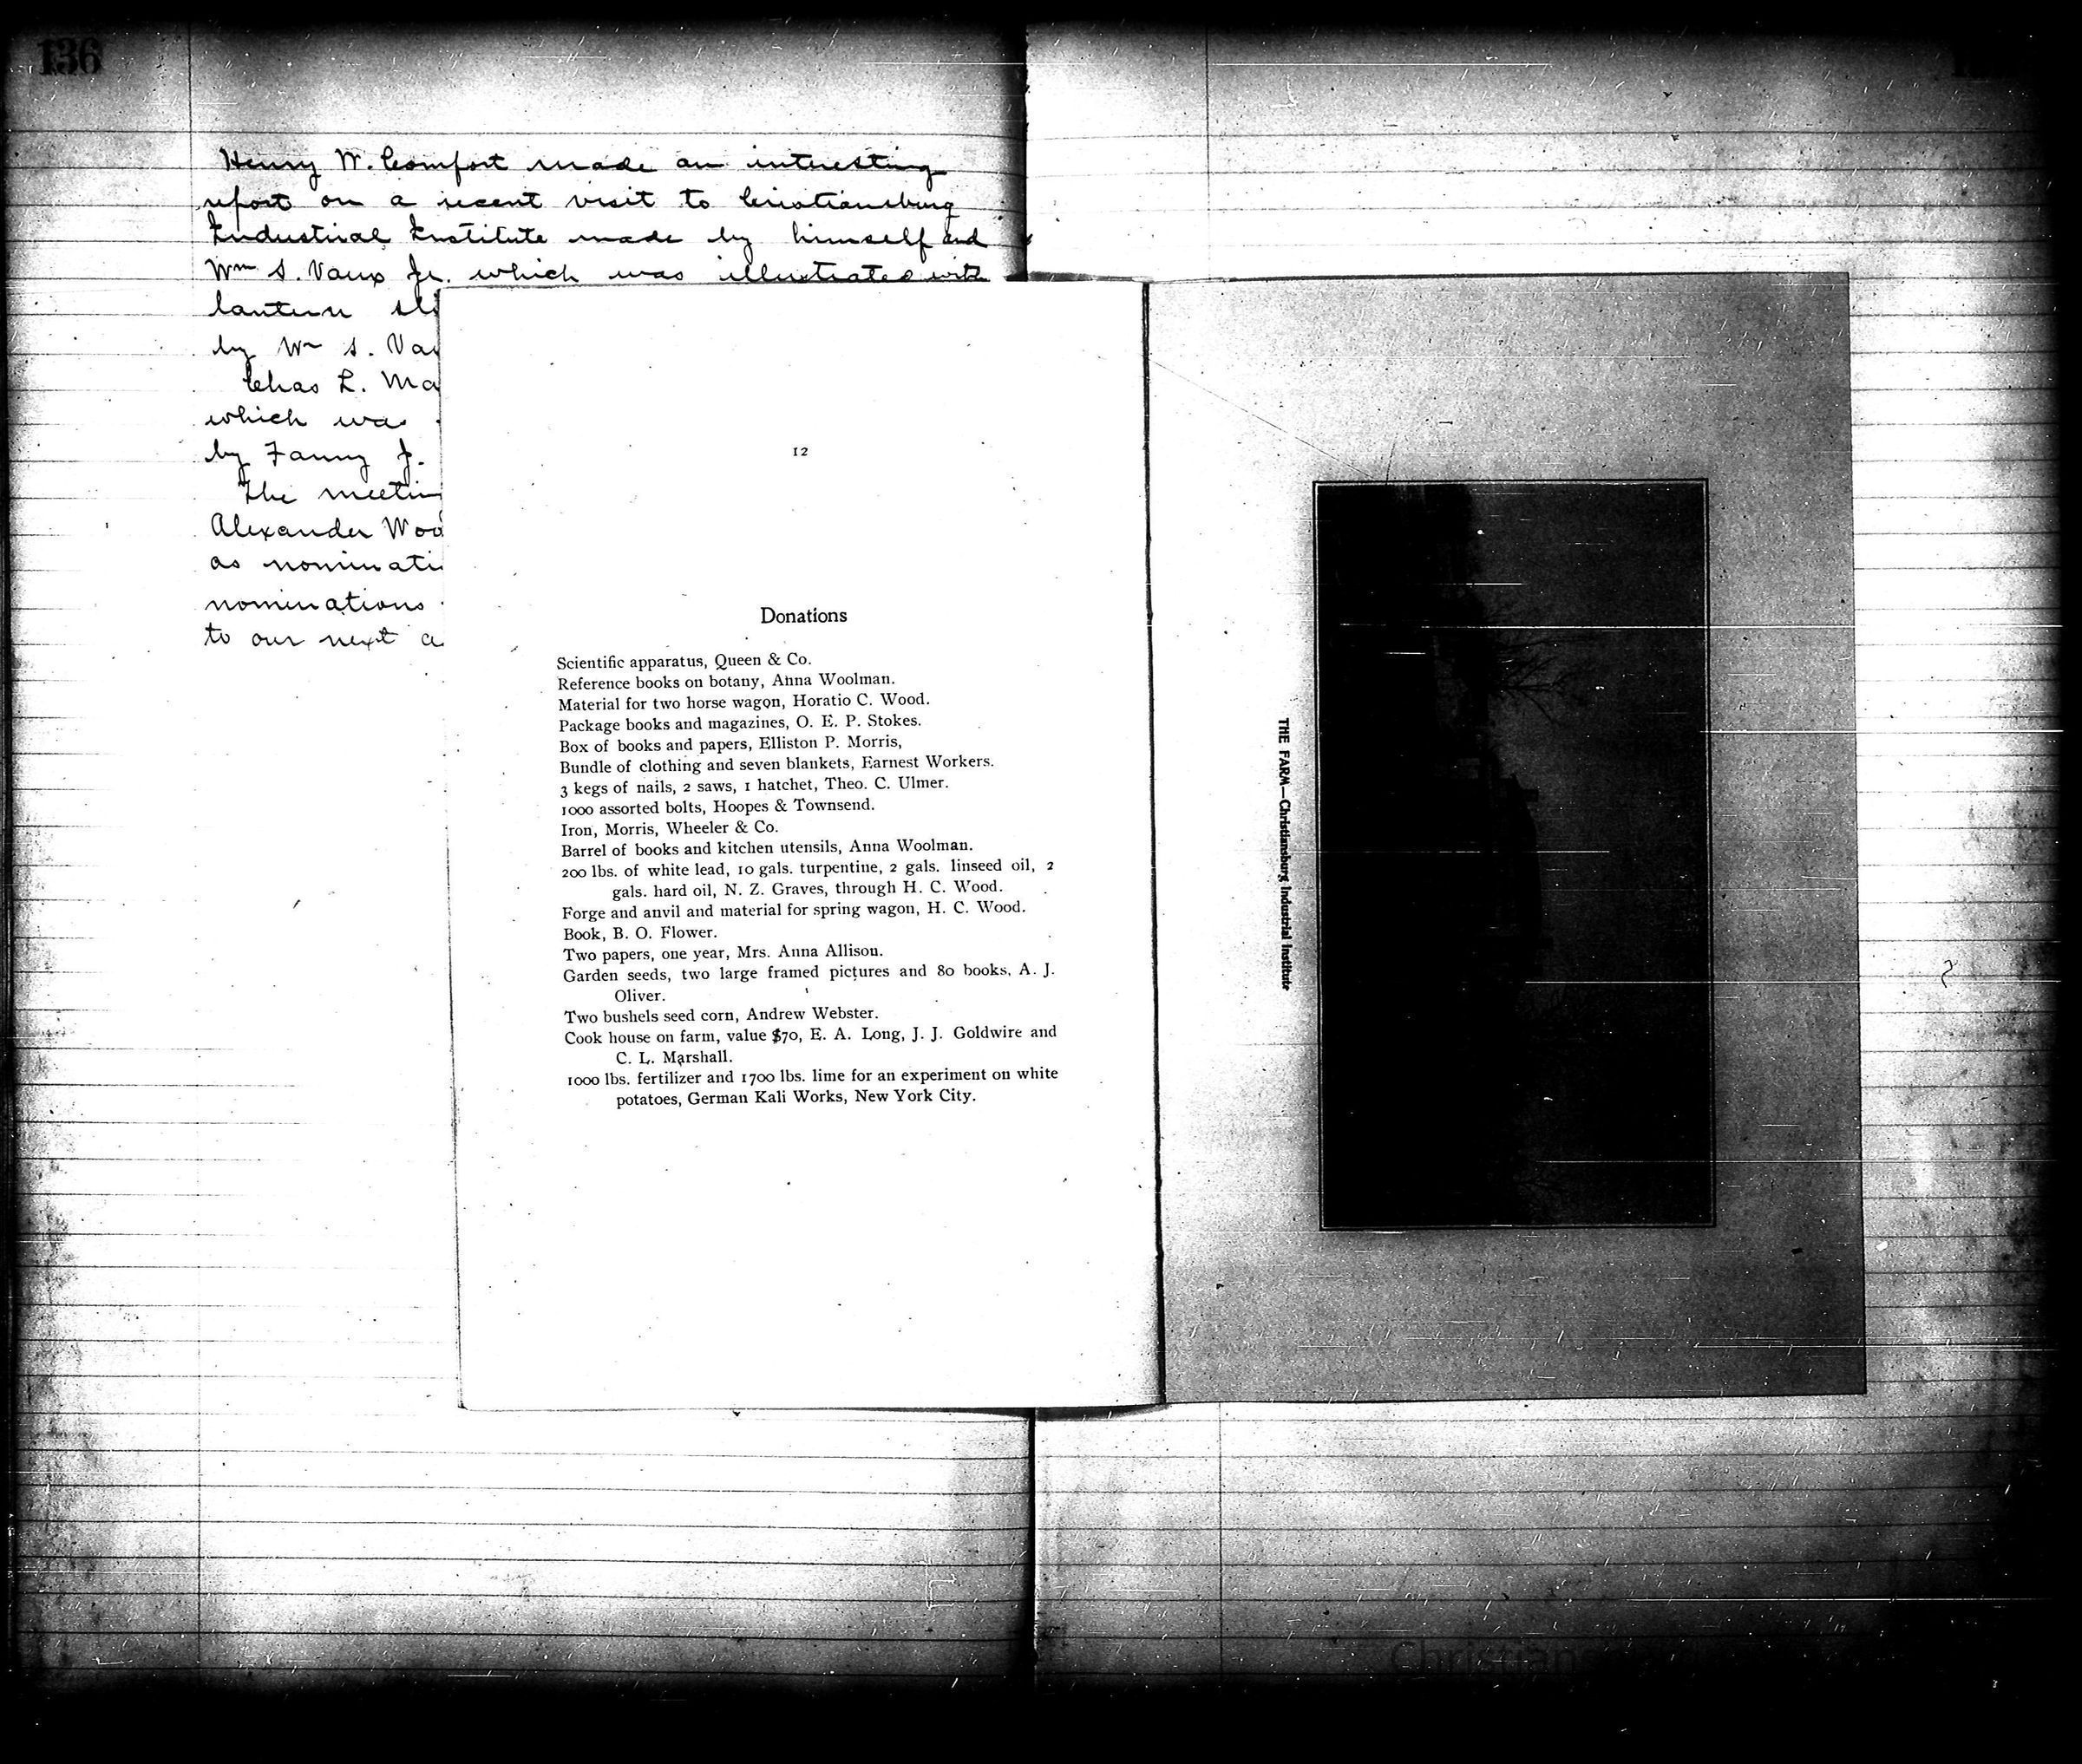 136
Henry W. Comfort made an interesting
report on a recent visit to Cristiansburg
Industrial Institute made by himself and
Wm S. Vaux Jr. which was illustrated with
lantern sli
by Wm S. Vau
Chas L. Ma
which was
by Fanny J.
The meetin
Alexander Woo
as nominati
nominations
to our next a
12
Donations
Scientific apparatus, Queen & Co.
Reference books on botany, Anna Woolman.
Material for two horse wagon, Horatio C. Wood.
Package books and magazines, O. E. P. Stokes.
Box of books and papers, Elliston P. Morris,
Bundle of clothing and seven blankets, Earnest Workers.
3 kegs of nails, 2 saws, 1 hatchet, Theo. C. Ulmer.
1000 assorted bolts, Hoopes & Townsend.
Iron, Morris, Wheeler & Co.
Barrel of books and kitchen utensils, Anna Woolman.
200 lbs. of white lead, 10 gals. turpentine, 2 gals. linseed oil, 2
gals. hard oil, N. Z. Graves, through H. C. Wood.
Forge and anvil and material for spring wagon, H. C. Wood.
Book, B. O. Flower.
Two papers, one year, Mrs. Anna Allison.
Garden seeds, two large framed pictures and 80 books, A. J.
Oliver.
Two bushels seed corn, Andrew Webster.
Cook house on farm, value $70, E. A. Long, J. J. Goldwire and
C. L. Marshall.
1000 lbs. fertilizer and 1700 lbs. lime for an experiment on white
potatoes, German Kali Works, New York City.
THE FARM—Christiansburg Industrial Institute
Christians